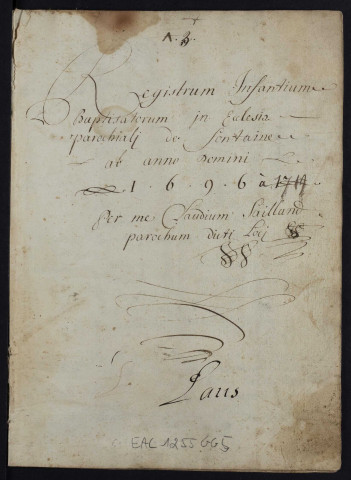 A. B.
Registrum Infantium
baptisatorum in Eclesia
parochiali de Fontaine
ab anno Domini
1696 à 1717
Per me Claudium Sailland
parochum dicti Loij
Paris
EAC 1255 GG5